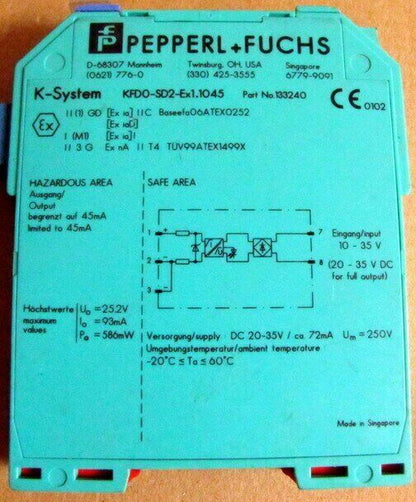 PEPPERL+FUCHS
D-68307 Mannheim Twinsburg, OH, USA Singapore
(0621) 776-0 (330) 425-3555 6779-9091
K-System KFD0-SD2-Ex1.1045 Part No.133240 CE 0102
Ex II (1) GD [Ex ia] IIC Baseefa06ATEX0252
[Ex iaD]
I (M1) [Ex ia] I
II 3 G Ex nA II T4 TUV99ATEX1499X
HAZARDOUS AREA SAFE AREA
Ausgang/
Output
begrenzt auf 45mA
limited to 45mA
1 + + 7 Eingang/input
10 - 35 V
2 - - 8 (20 - 35 V DC
for full output)
3 -
Höchstwerte Uo = 25.2V
maximum Io = 93mA
values Po = 586mW
Versorgung/supply DC 20-35V / ca. 72mA Um = 250V
Umgebungstemperatur/ambient temperature
-20°C ≤ Ta ≤ 60°C
Made in Singapore